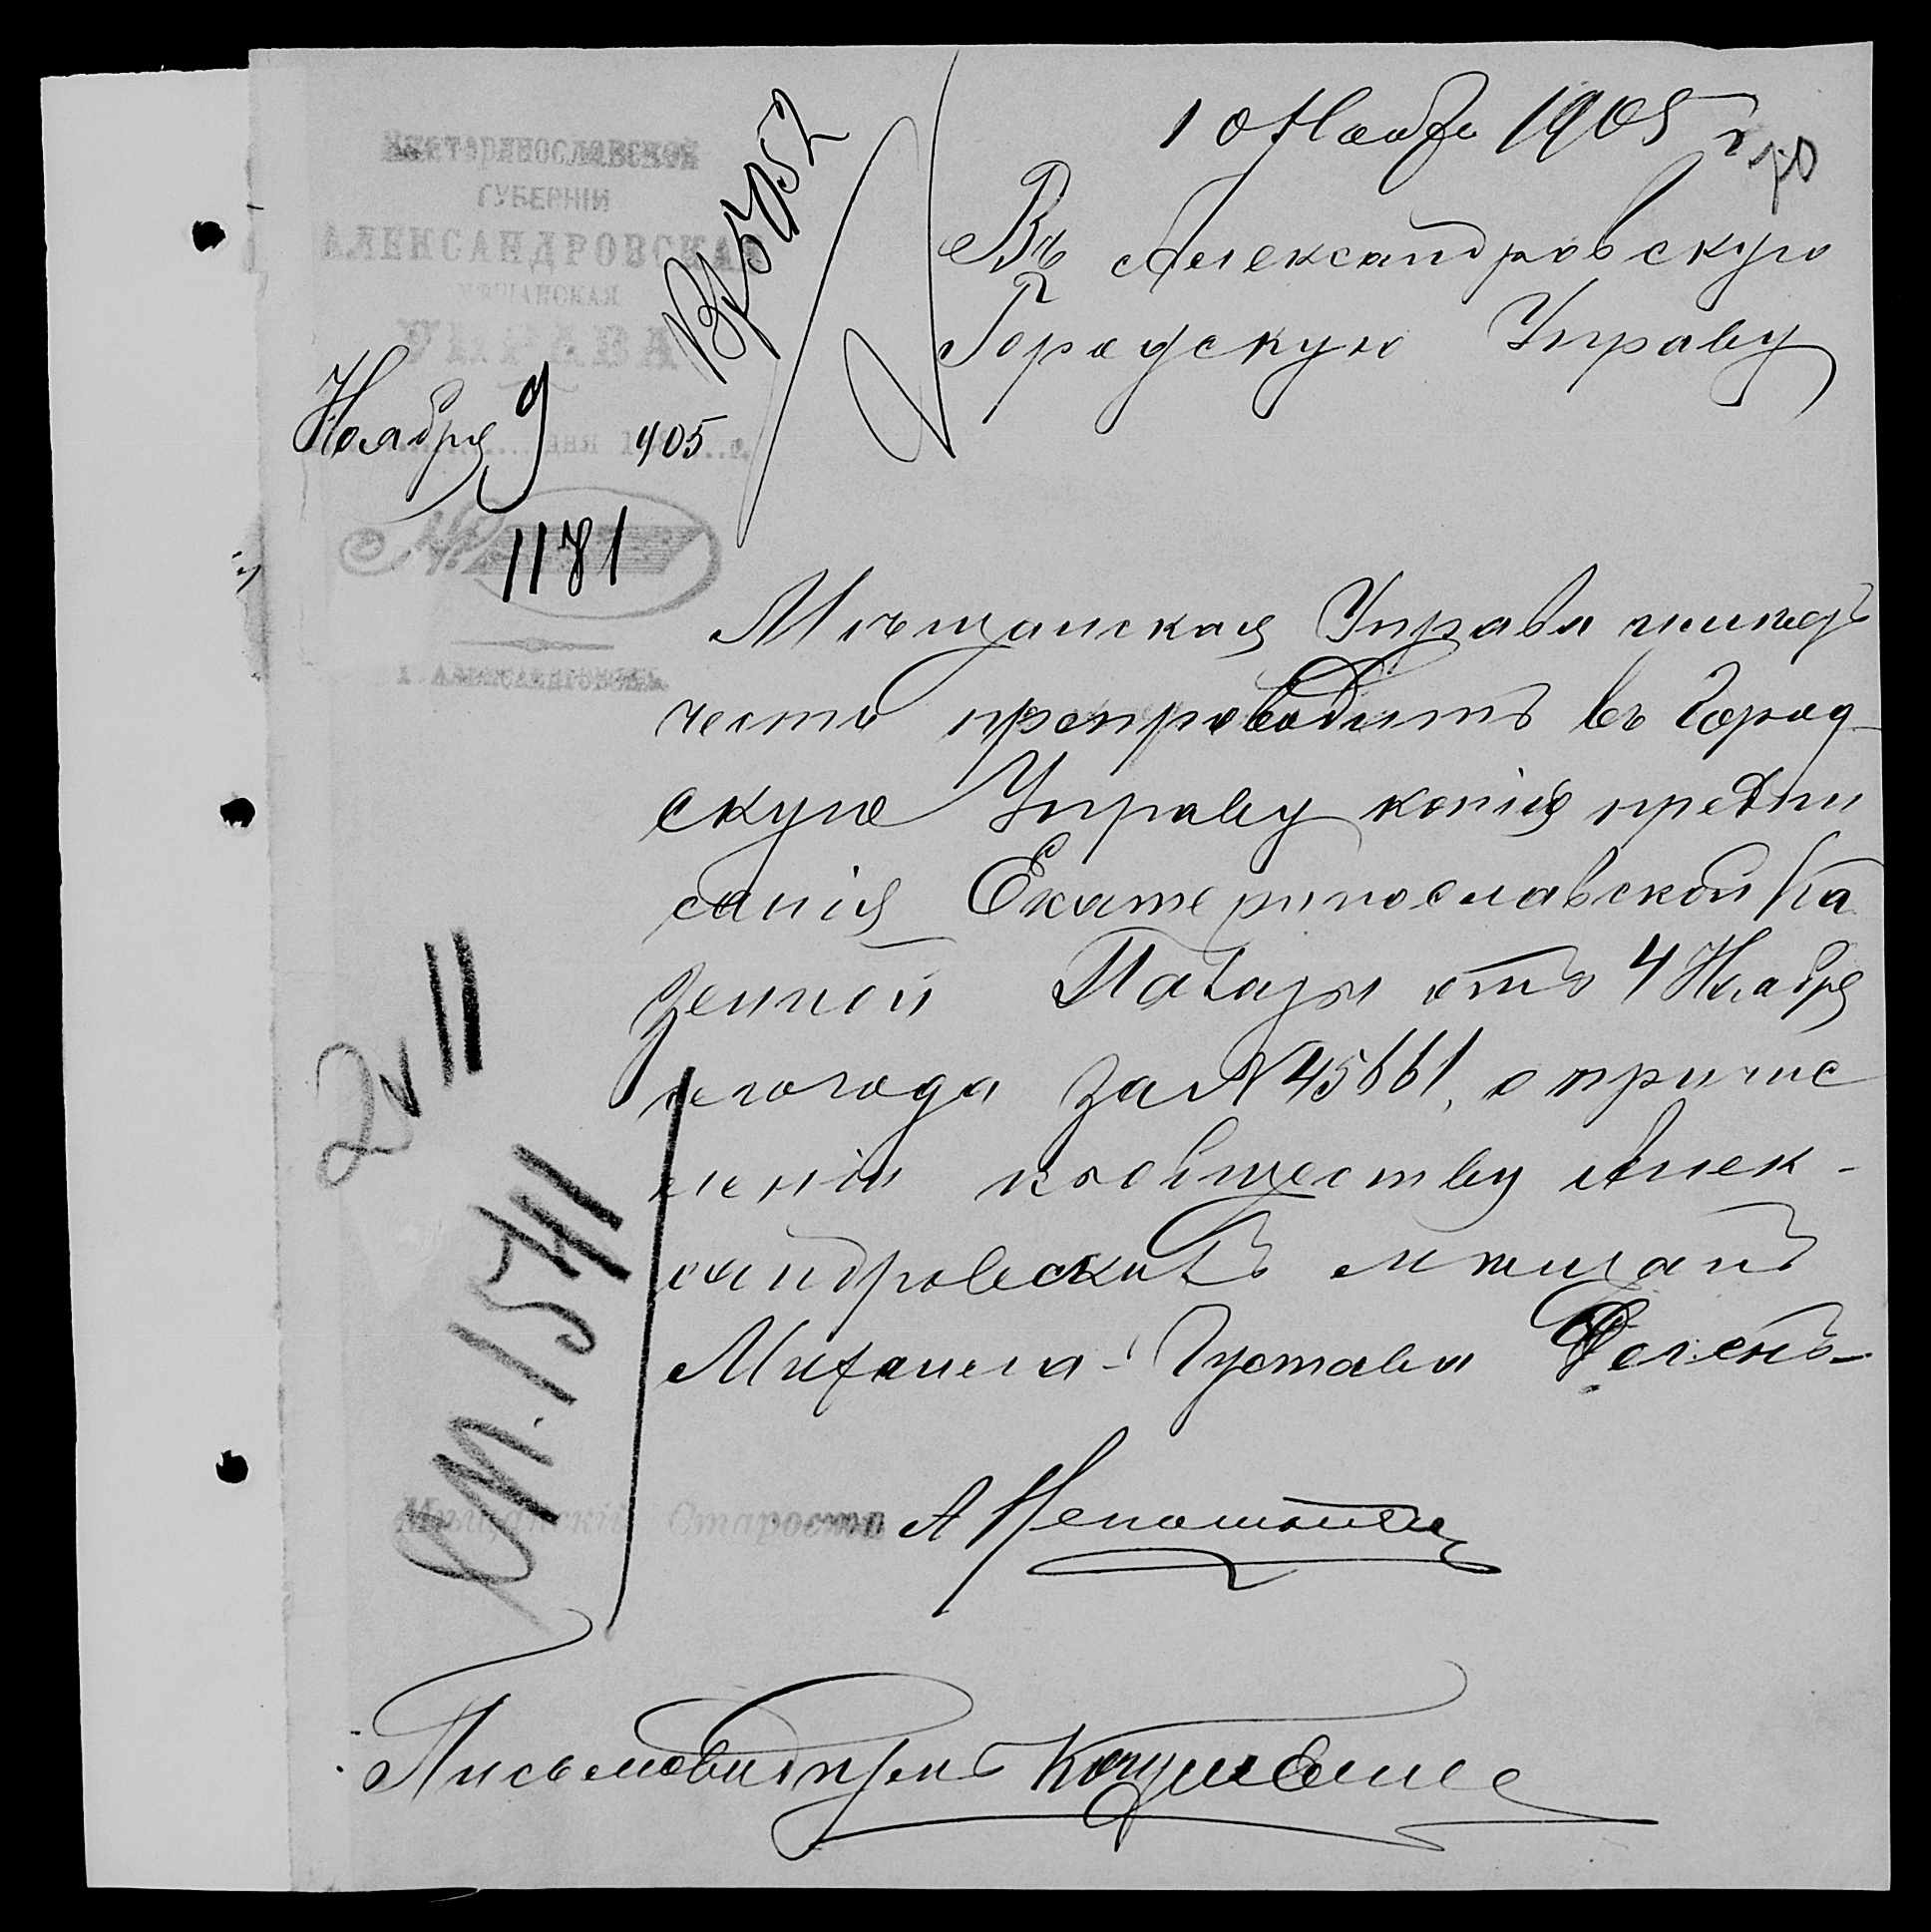 10 Ноябр 1905 г.
70
Вх 5052
ЕКАТЕРИНОСЛАВСКОЙ
ГУБЕРНІИ
АЛЕКСАНДРОВСКАЯ
МѢЩАНСКАЯ
УПРАВА
Ноября 9 дня 1905 г.
№ 1181
г. АЛЕКСАНДРОВСКЪ.
Въ Александровскую
Городскую Управу
Мѣщанская Управа имѣетъ
честь препроводить въ Город-
скую Управу копію предпи
санія Екатеринославской Ка
зенной Палаты отъ 4 Ноября
сего года за № 45661, о причис
леніи къ обществу Алек-
сандровскихъ мѣщанъ
Михаила-Густава
2 II
ст. 1541
Мѣщанскій Староста А
Письмоводитель